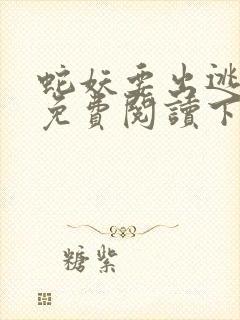 蛇妖要出逃
免費閱讀下
糖紫